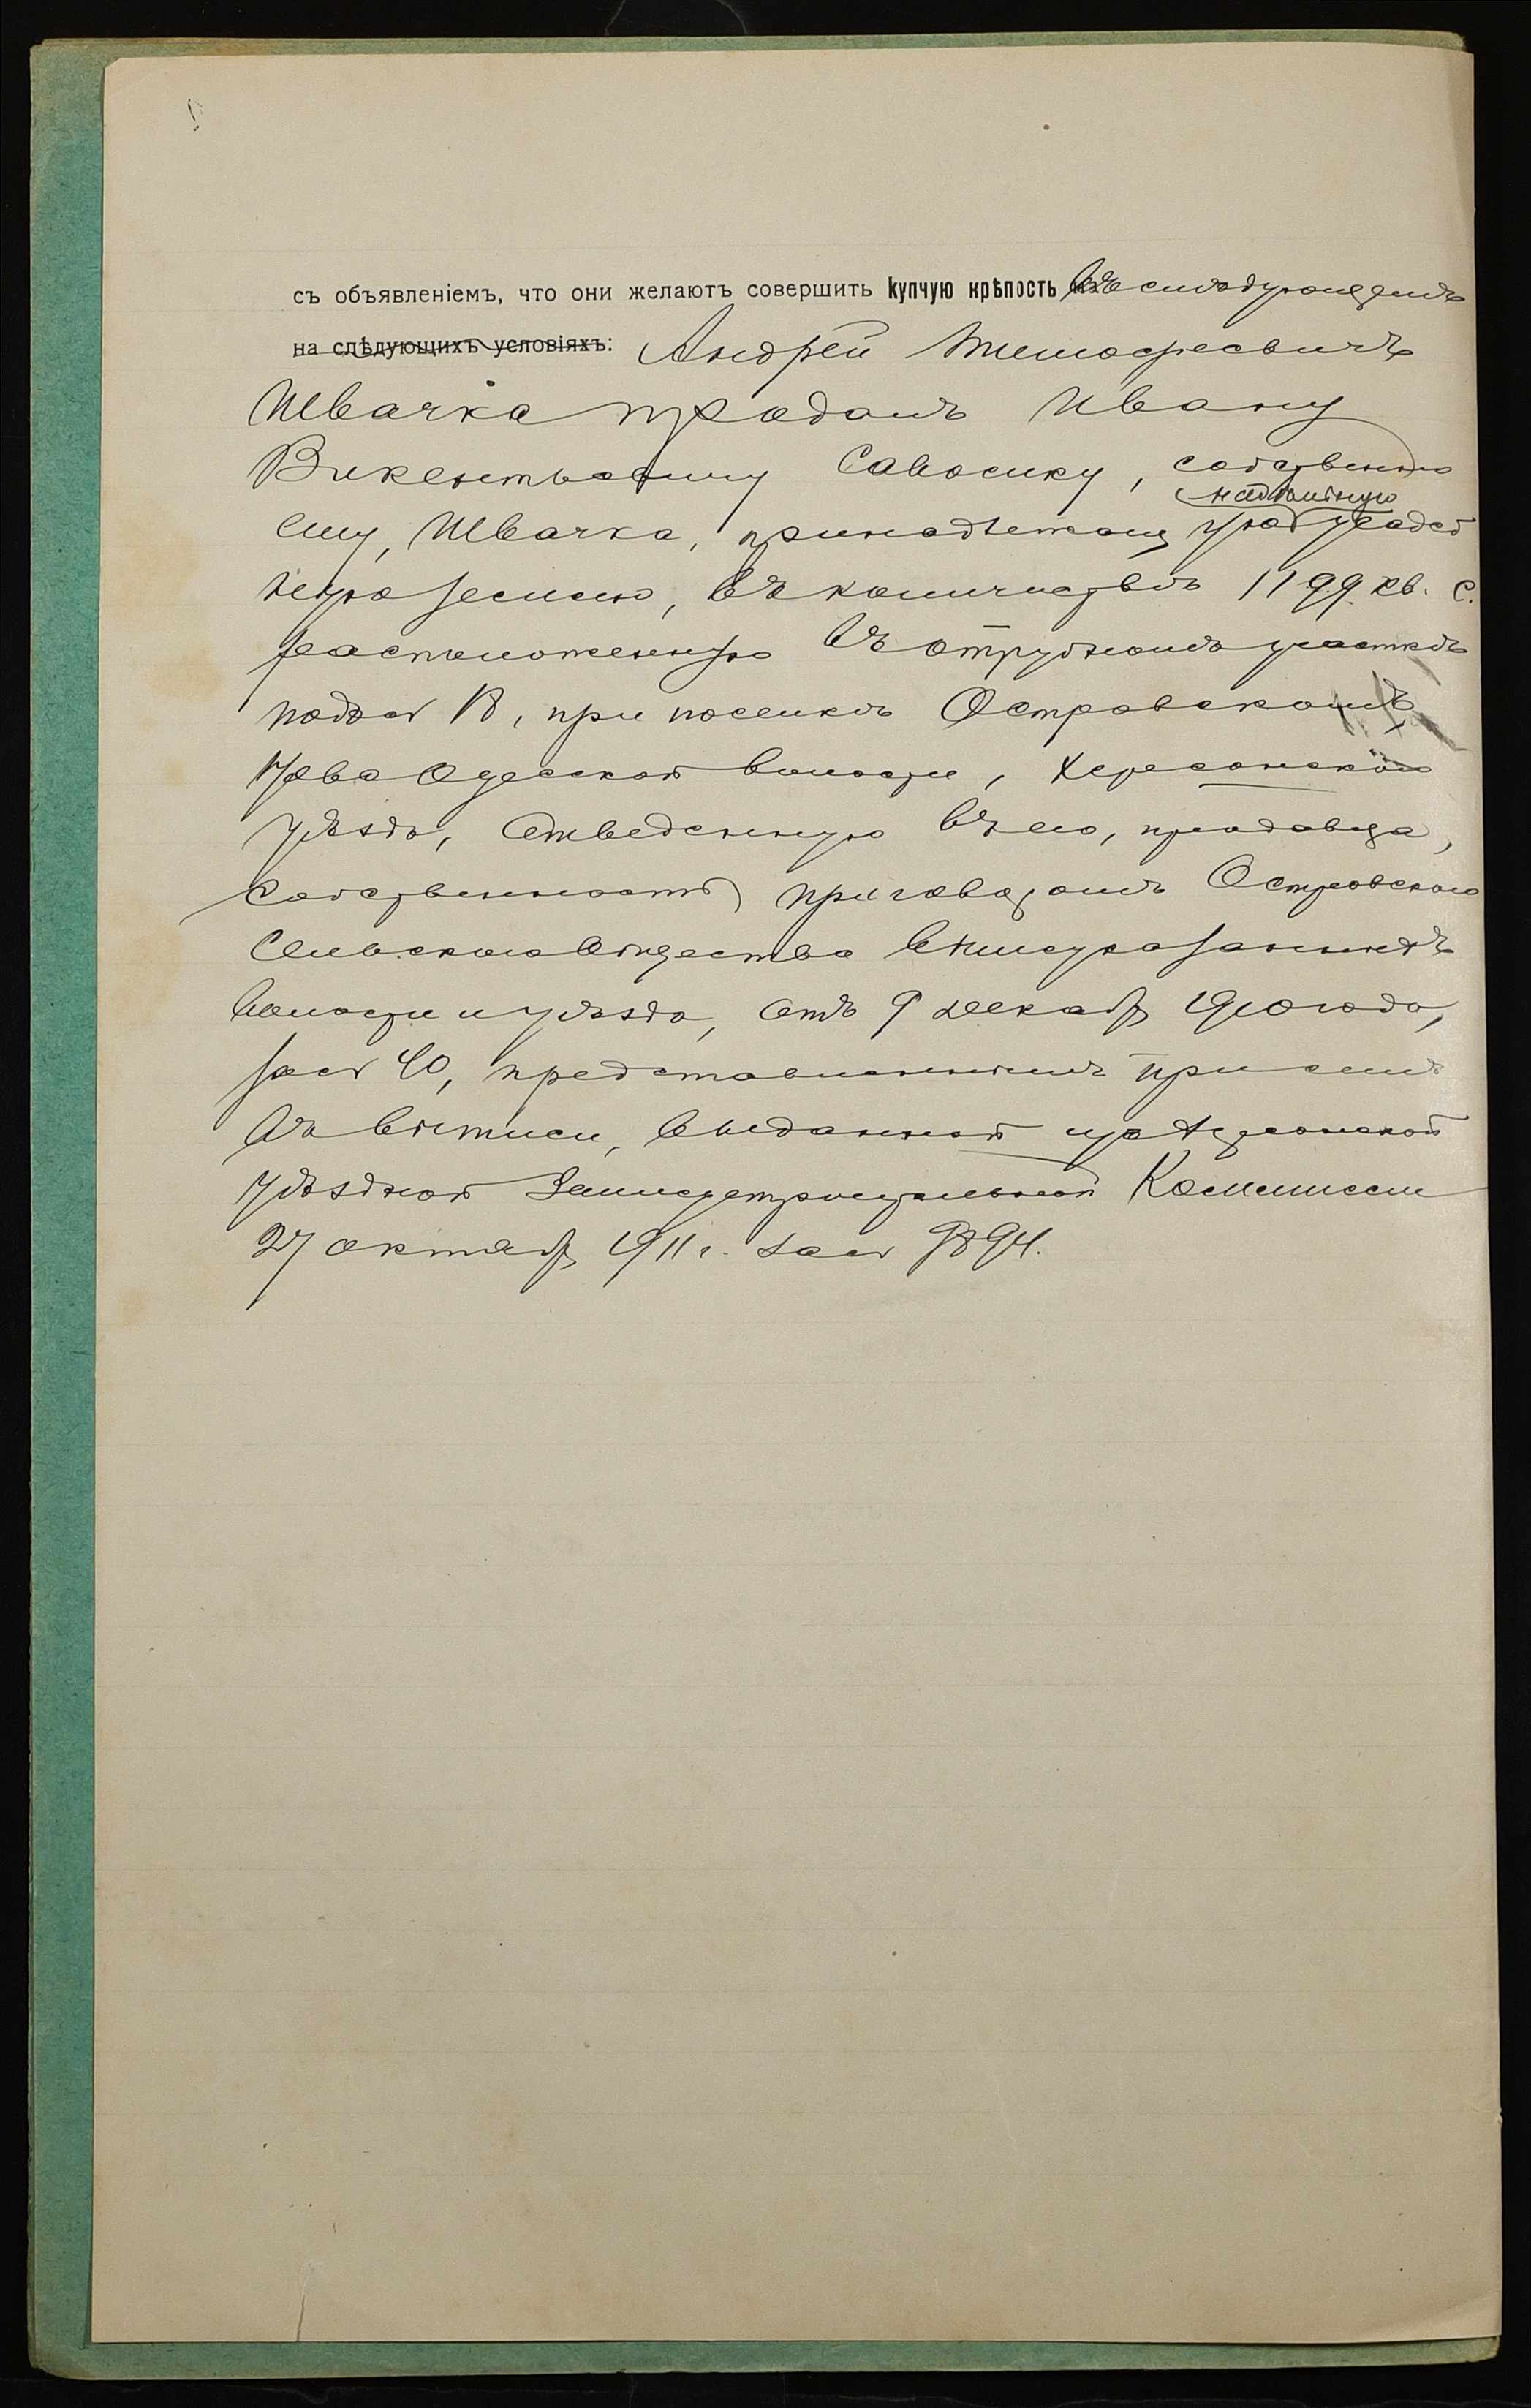 съ объявленіемъ, что они желаютъ совершить купчую крѣпость въ слѣдующемъ
на слѣдующихъ условіяхъ: Андрей Тимофеевичъ
Швачка продалъ Ивану
Викентьевичу Савосику, собственно
надѣльную
ему, Швачка, принадлежащую усадеб
ную землю, въ количествѣ 1199 кв. с.
расположенную въ отрубномъ участкѣ
подъ № 18, при поселкѣ Островскомъ
Ново Одесской волости, Херсонскаго
уѣзда, отведенную въ его, продавца,
собственность приговоромъ Островскаго
Сельскаго Общества вышеуказанныхъ
волости и уѣзда, отъ 9 декабр 1910 года,
за № 40, представленнымъ при семъ
въ выписи, выданной изъ Херсонской
уѣздной Землеустроительной Комиссіи
27 октяб 1911 г. за № 9894.